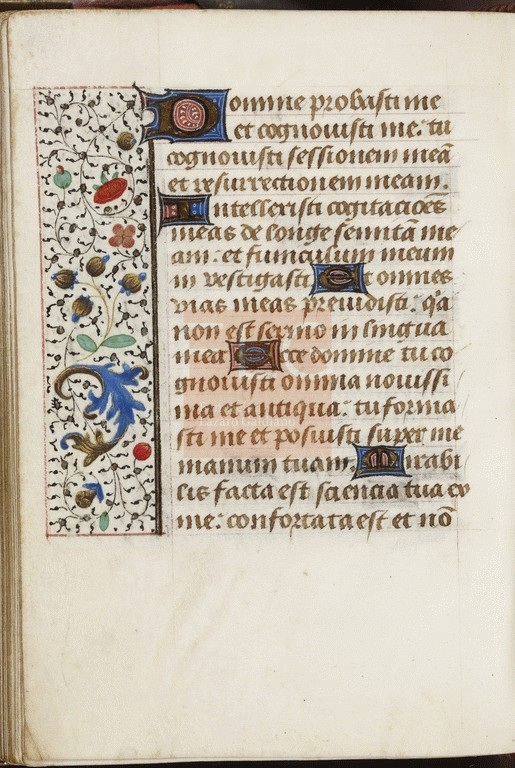 Domine probasti me
et cognouisti me: tu
cognouisti sessionem meā
et resurrectionem meam.
Intellexisti cogitacões
meas de longe semitā me
am: et funiculum meum
in vestigasti Et omnes
vias meas preuidisti: q̄a
non est sermo in lingua
mea Ecce domine tu co
gnouisti omnia nouissi
ma et antiqua: tu forma
sti me et posuisti super me
manum tuam. Mirabi
lis facta est sciencia tua ex
me: confortata est et nō
Lázaro Galdiano